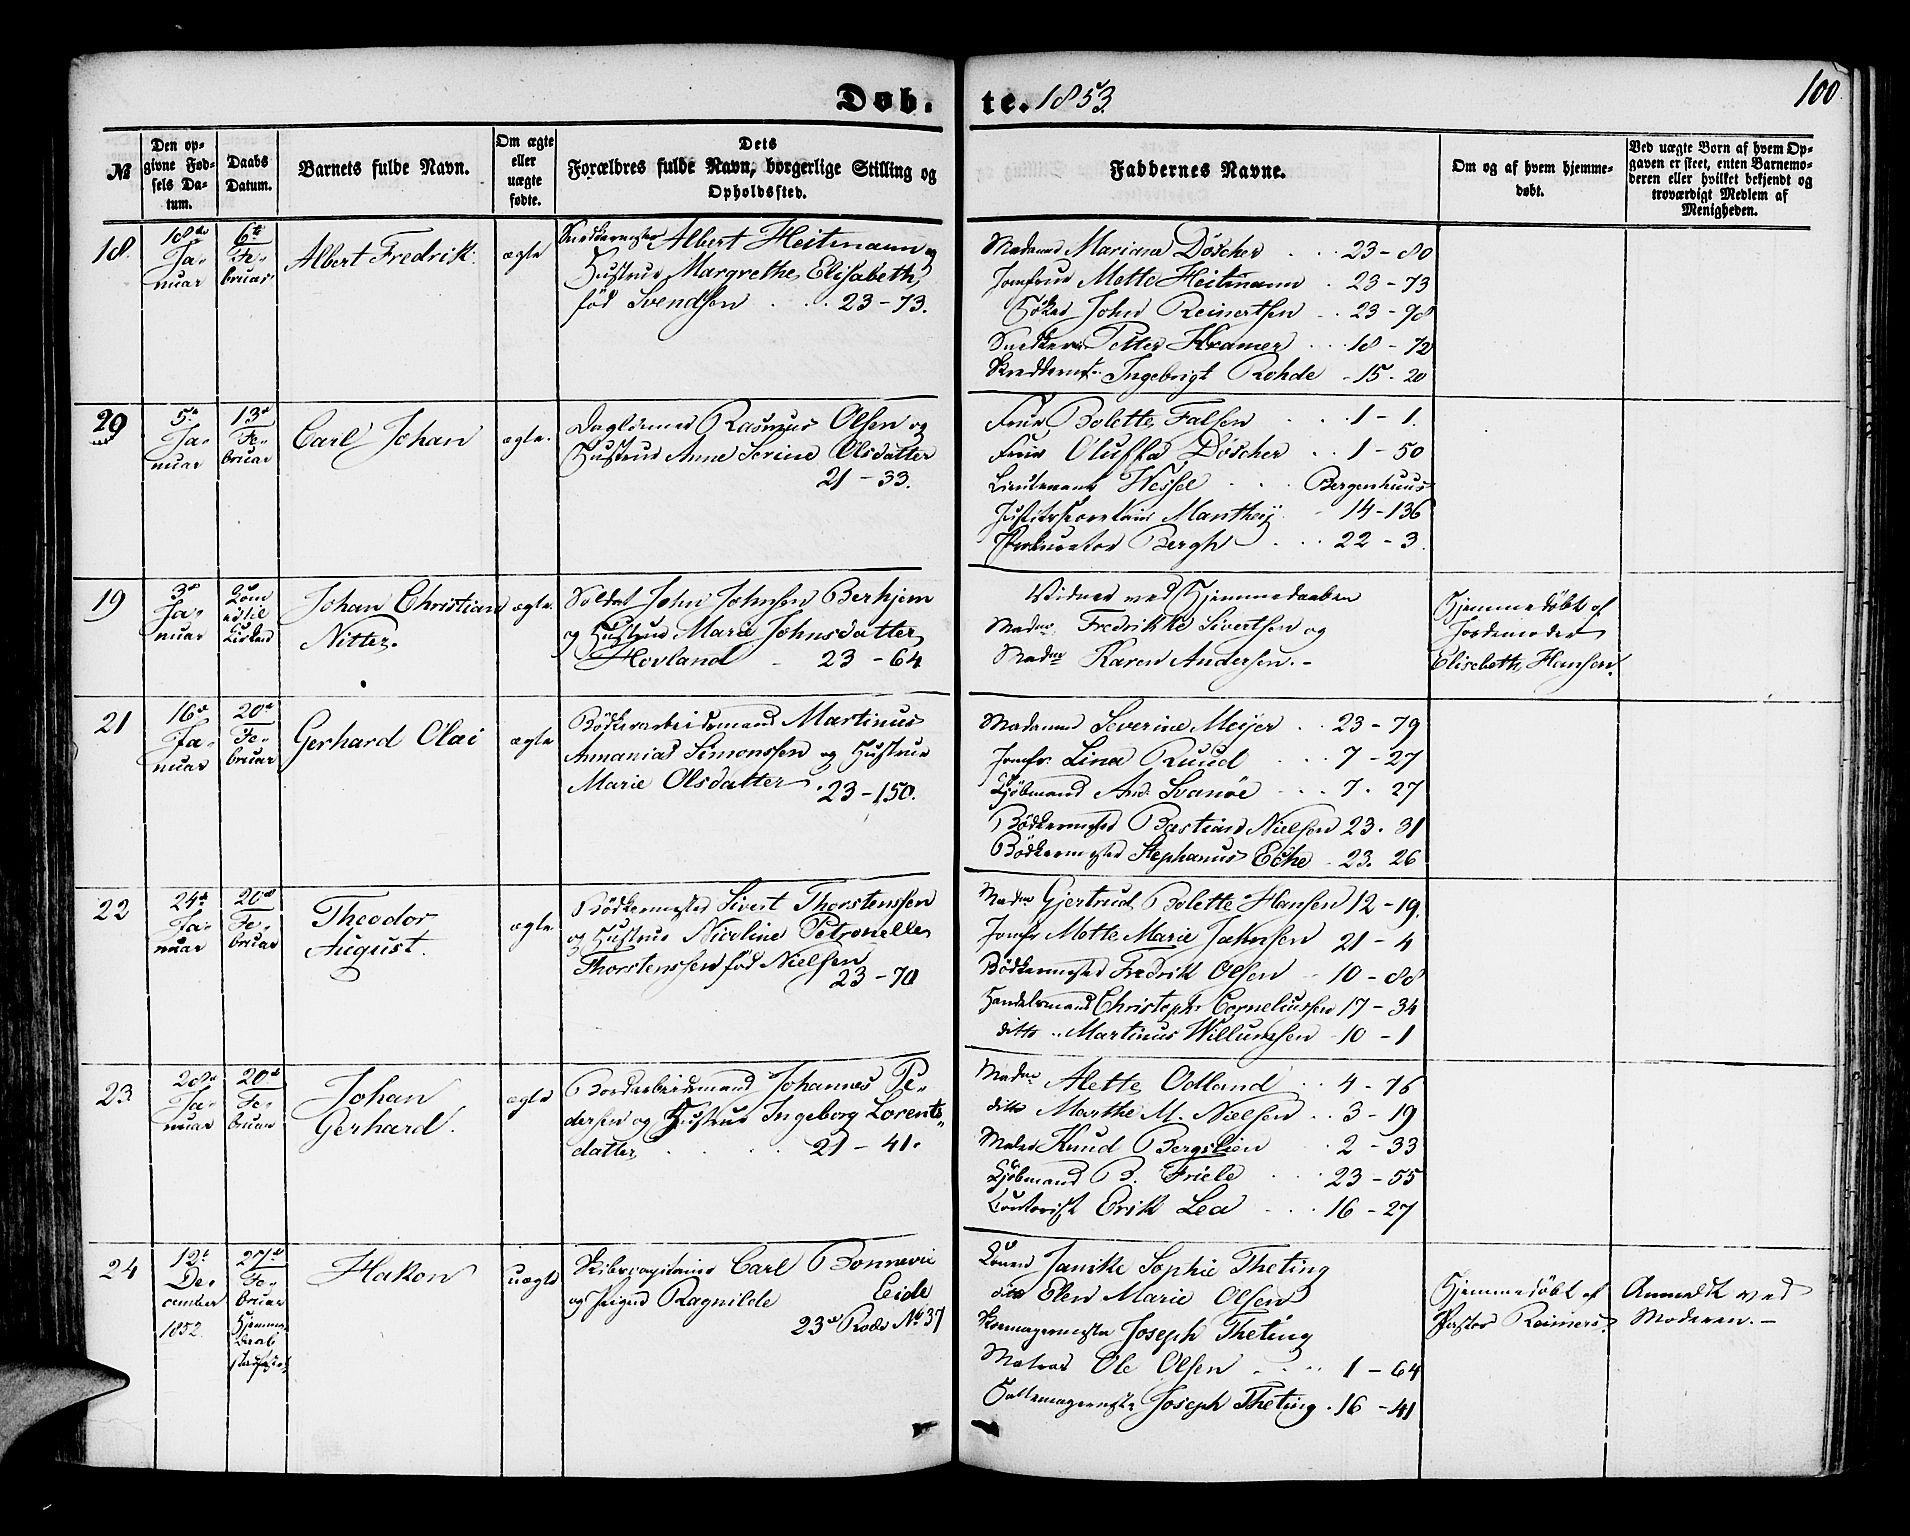 Døb.
te. 1853
100
№
Den op-
givne Fød-
sels Da-
tum.
Daabs
Datum.
Barnets fulde Navn.
Om ægte
eller
uægte
fødte.
Dets
Forældres fulde Navn, borgerlige Stilling og
Opholdssted.
Faddernes Navne.
Om og af hvem hjemme-
døbt.
Ved uægte Børn af hvem Op-
gaven er skeet, enten Barnemo-
deren eller hvilket bekjendt og
troværdigt Medlem af
Menigheden.
18.
18de
Ja-
nuar
6te
Fe-
bruar
Albert Fredrik.
ægte
Snedkermester Albert Heitmann og
Hustrue Margrethe Elisabeth
fød Svendsen 23-73.
Madame Mariane Döscher 23-80
Jomfrue Mette Heitmann 23-73
John Reinertsen 23-98
Snedker Petter Kramer 18-72
Ingebrigt Rohde 15-20
20
5te
Ja-
nuar
13de
Fe-
bruar
Carl Johan
ægte.
Daglönner Rasmus Olsen og
Hustrue Anne Serine Olsdatter
21-33.
Frue Bolette Falsen 1-1.
Frue Oluffa Döscher 1-50
Lieutenant Wessel Bergenhuus
Manthey 14-136
Prokurator Bergh 22-3.
19
3de
Ja-
nuar
Kom
ei til
Kirken
Johan Christian
Nitter.
ægte.
Soldat John Johnsen Berhjem
og Hustrue Marie Johnsdatter
Hovland 23-64
Vidner ved Hjemmedaaben
Madme Fredrikke Sivertsen og
Madme Karen Andersen.-
Hjemmedöbt af
Jordemoder
Elisebeth Hansen.
21
16de
Ja-
nuar
20de
Fe-
bruar
Gerhard Olai
ægte
Bödkerarbeidsmand Martinus
Annanias Simonssen og Hustrue
Marie Olsdatter 23-150.
Madame Severine Meijer 23-79
Jomfr. Lina Ruud 7-27
Kjöbmand And. Svanöe 7-27
Bödkermester Bastian Nielsen 23-31
Bödkermester Stephanus Eche 23-26
22
24de
Ja-
nuar
20de
Fe-
bruar
Theodor
August.
ægte
Bödkermester Sivert Thorstensen
og Hustrue Nicoline Petronelle
Thorstenssen fød Nielsen
23-70
Madme Gjertrud Bolette Hansen 12-19.
Jomfr Mette Marie Jahnsen 21-4
Bödkermester Fredrik Olsen 10-88
Handelsmand Christoph Corneliussen 17-34
ditto Martinus Willumsen 10-1
23
20de
Ja-
nuar
20de
Fe-
bruar
Johan
Gerhard.
ægte
Bordarbeidsmand Johannes Pe-
dersen og Hustrue Ingeborg Lorents-
datter 21-41.
Madme Alette Odland 4-76
ditto Marthe M. Nielsen 3-19
Maler Knud Bergslien 2-33
Kjöbmand B. Friele 23-55
Contorist Erik Lea 16-27
24
12te
De-
cember
1852.
27de
Fe-
bruar
Hakon
uægte
Skibscapitaine Carl Bonnevie
og Pigen Ragnilde Eide
23de Rode No 37
Konen Janike Sophie Theting
ditto Elen Marie Olsen
Skomagermester Joseph Theting
Matros Ole Olsen 1-64
Joseph Theting 16-41
Hjemmedöbt af
Pastor Reimers.
Anmeldt ved
Moderen.-